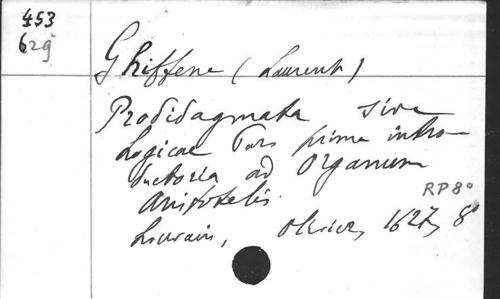 453
629
Ghiffene (Laurent)
Prodidagmata sive
Logicae Pars prima intro-
ductoria ad Organum
Aristotelis.
RP 8°
Louvain, Olivier, 1627, 8°